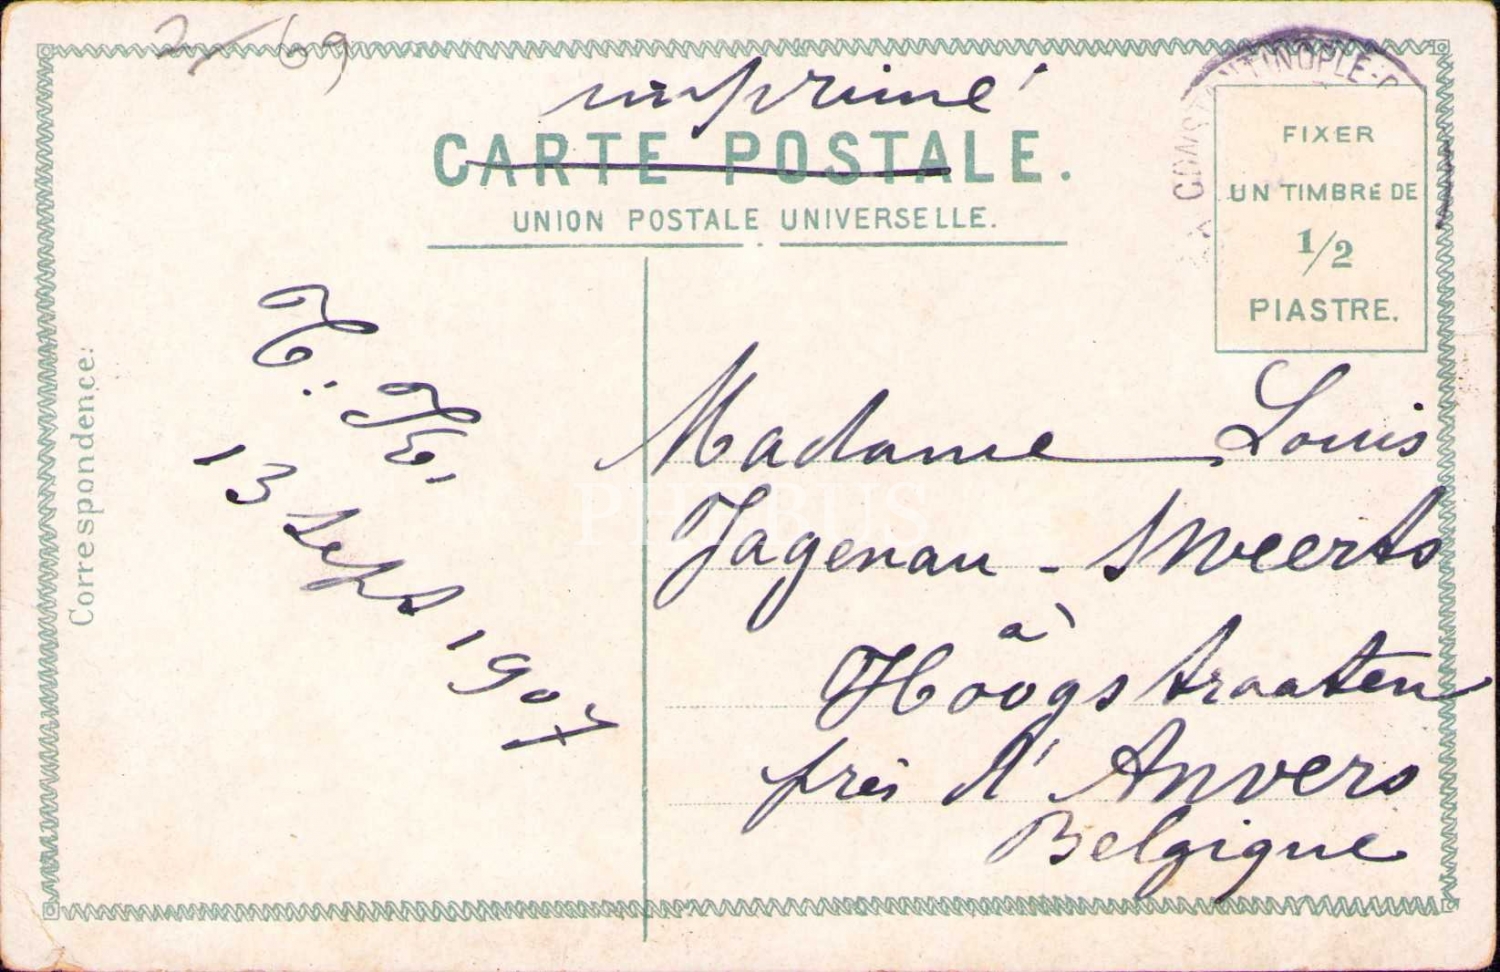 2/69
imprimé
CARTE POSTALE.
UNION POSTALE UNIVERSELLE.
CONSTANTINOPLE-
FIXER
UN TIMBRE DE
1/2
PIASTRE.
Correspondence:
13 Sept 1907
Madame Louis
Jagenau - Sweerts
à
Hoogstraaten
près d'Anvers
Belgique
PHEBUS